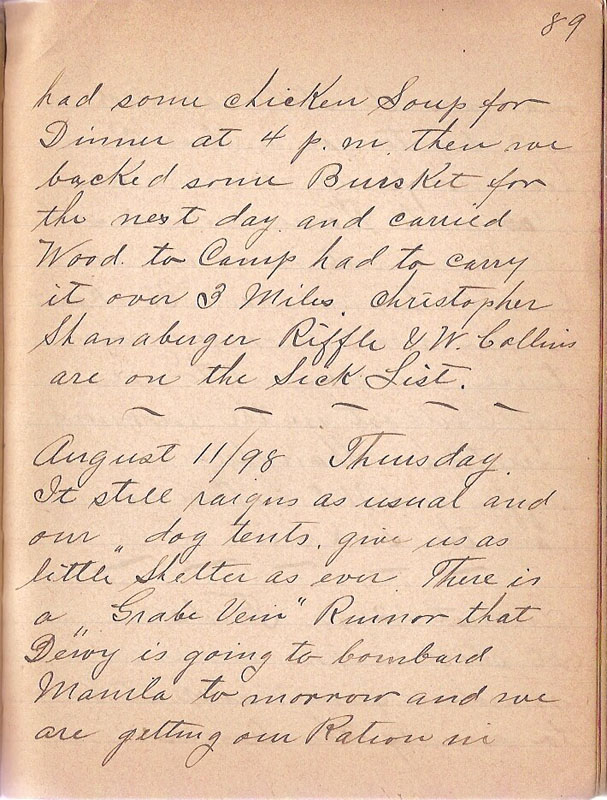 89
had some chicken Soup for
Dinner at 4 p.m. then we
backed some Bursket for
the next day and carried
Wood to Camp had to carry
it over 3 Miles. Christopher
Shanaberger Riffle & W. Collins
are on the Sick List.
August 11/98 Thursday.
It still raigns as usual and
our „dog tents, give us as
little Shelter as ever There is
a „Grabe Vein" Rumor that
Dewy is going to bombard
Manila to morrow and we
are getting our Ration in